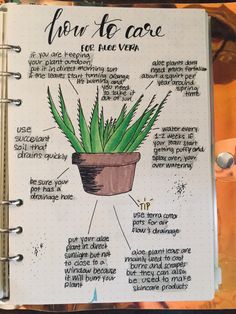 how to care
FOR ALOE VERA
if you are keeping
your plant outdoor,
put it in direct morning sun
if one leaves start turning orange
it's burning and
you need
to take it
out of sun
aloe plants don't
need much fertilizer
about a squirt per
year around
spring
time
use
succulent
soil that
drains quickly
water every
1-2 weeks. if
your leaves start
getting puffy and
over, your
over watering!
be sure your
pot has a
drainage hole
TIP
use terra cotta
pots for air
flow & drainage
put your aloe
plant in direct
sunlight but not
to close to a
window because
it will burn your
plant
aloe plant leaves are
mainly used to cool
burns and scrapes
but they can also
be used to make
skincare products